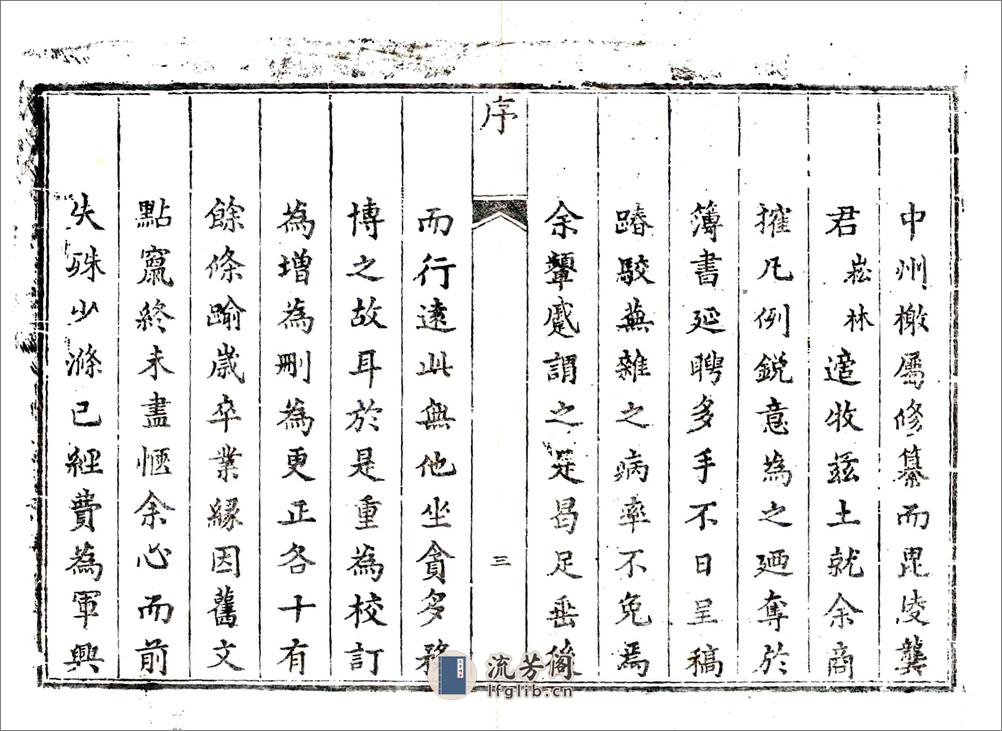 中州檄屬修纂而毘凌龔
君崧林適牧茲土就余商
搉凡例銳意為之廼奪於
簿書延聘多手不日呈稿
踳駮蕪雜之病率不免焉
余顰蹙謂之是曷足垂後
序
三
而行遠此無他坐貪多務
博之故耳於是重為校訂
為增為刪為更正各十有
餘條踰歲卒業緣因舊文
點竄終未盡愜余心而前
失殊少滌已經費為軍興
流芳阁
lfglib.cn